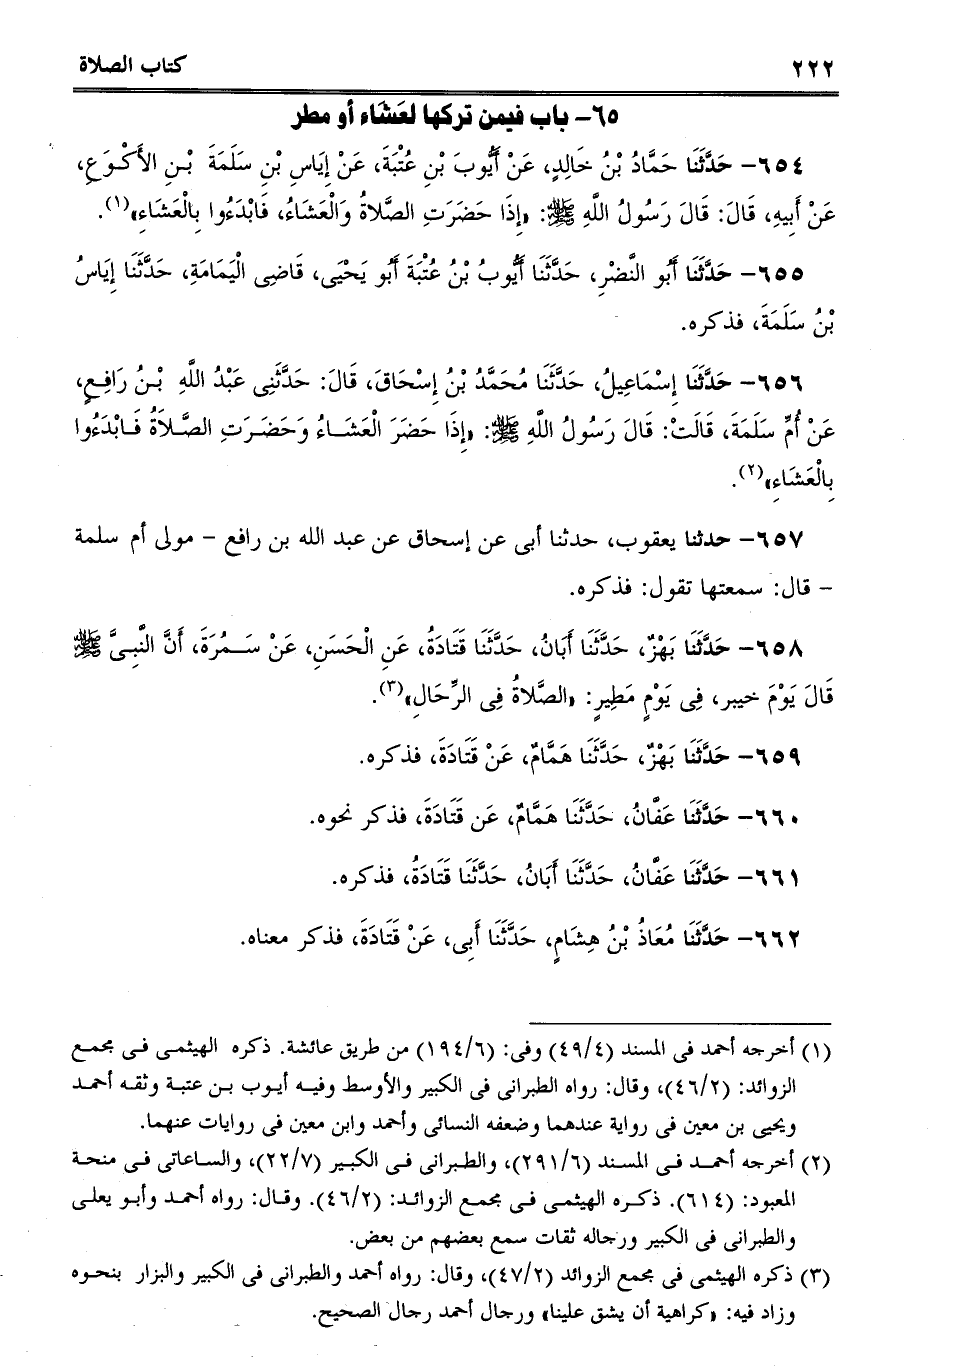 ٢٢٢ كتاب الصلاة
٦٥- باب فيمن تركها لعَشَاء أو مطر
٦٥٤- حَدَّثَنَا حَمَّادُ بْنُ خَالِدٍ، عَنْ أَيُّوبَ بْنِ عُتْبَةَ، عَنْ إِيَاسِ بْنِ سَلَمَةَ بْنِ الأَكْوَعِ،
عَنْ أَبِيهِ، قَالَ: قَالَ رَسُولُ اللَّهِ ﷺ: «إِذَا حَضَرَتِ الصَّلاَةُ وَالْعَشَاءُ، فَابْدَءُوا بِالْعَشَاءِ»(١).
٦٥٥- حَدَّثَنَا أَبُو النَّضْرِ، حَدَّثَنَا أَيُّوبُ بْنُ عُتْبَةَ أَبُو يَحْيَى، قَاضِى الْيَمَامَةِ، حَدَّثَنَا إِيَاسُ
بْنُ سَلَمَةَ، فذكره.
٦٥٦- حَدَّثَنَا إِسْمَاعِيلُ، حَدَّثَنَا مُحَمَّدُ بْنُ إِسْحَاقَ، قَالَ: حَدَّثَنِى عَبْدُ اللَّهِ بْنُ رَافِعٍ،
عَنْ أُمِّ سَلَمَةَ، قَالَتْ: قَالَ رَسُولُ اللَّهِ ﷺ: «إِذَا حَضَرَ الْعَشَاءُ وَحَضَرَتِ الصَّلاَةُ فَابْدَءُوا
بِالْعَشَاءِ»(٢).
٦٥٧- حدثنا يعقوب، حدثنا أبى عن إسحاق عن عبد الله بن رافع – مولى أم سلمة
– قال: سمعتها تقول: فذكره.
٦٥٨- حَدَّثَنَا بَهْزٌ، حَدَّثَنَا أَبَانُ، حَدَّثَنَا قَتَادَةُ، عَنِ الْحَسَنِ، عَنْ سَمُرَةَ، أَنَّ النَّبِىَّ ﷺ
قَالَ يَوْمَ خيبر، فِى يَوْمٍ مَطِيرٍ: «الصَّلاَةُ فِى الرِّحَالِ»(٣).
٦٥٩- حَدَّثَنَا بَهْزٌ، حَدَّثَنَا هَمَّامٌ، عَنْ قَتَادَةَ، فذكره.
٦٦٠- حَدَّثَنَا عَفَّانُ، حَدَّثَنَا هَمَّامٌ، عَن قَتَادَةَ، فذكر نحوه.
٦٦١- حَدَّثَنَا عَفَّانُ، حَدَّثَنَا أَبَانُ، حَدَّثَنَا قَتَادَةُ، فذكره.
٦٦٢- حَدَّثَنَا مُعَاذُ بْنُ هِشَامٍ، حَدَّثَنَا أَبِى، عَنْ قَتَادَةَ، فذكر معناه.
(١) أخرجه أحمد فى المسند (٤٩/٤) وفى: (١٩٤/٦) من طريق عائشة. ذكره الهيثمى فى مجمع
الزوائد: (٤٦/٢)، وقال: رواه الطبرانى فى الكبير والأوسط وفيه أيوب بن عتبة وثقه أحمد
ويحيى بن معين فى رواية عندهما وضعفه النسائى وأحمد وابن معين فى روايات عنهما.
(٢) أخرجه أحمد فى المسند (٢٩١/٦)، والطبرانى فى الكبير (٢٢/٧)، والساعاتى فى منحة
المعبود: (٦١٤). ذكره الهيثمى فى مجمع الزوائد: (٤٦/٢). وقال: رواه أحمد وأبو يعلى
والطبرانى فى الكبير ورجاله ثقات سمع بعضهم من بعض.
(٣) ذكره الهيثمى فى مجمع الزوائد (٤٧/٢)، وقال: رواه أحمد والطبرانى فى الكبير والبزار بنحوه
وزاد فيه: «كراهية أن يشق علينا» ورجال أحمد رجال الصحيح.